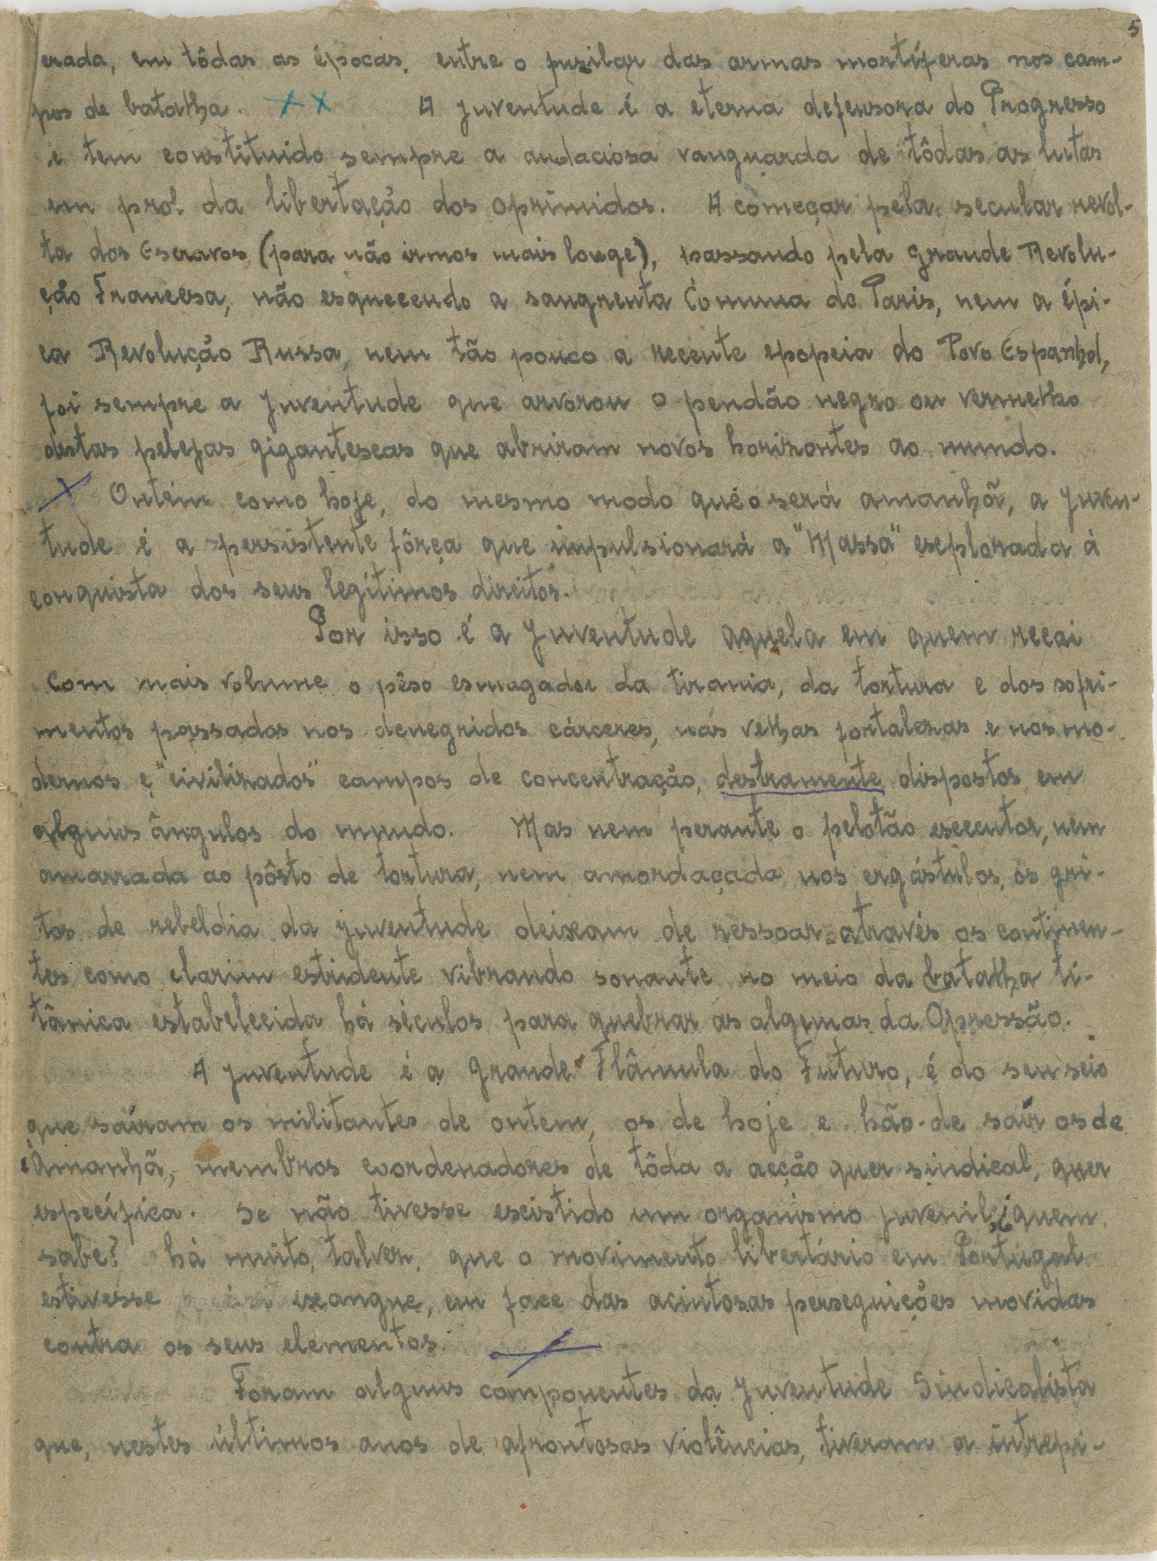 5
erada, em tôdas as épocas, entre o fuzilar das armas mortíferas nos cam-
pos de batalha. XX A juventude é a eterna defensora do Progresso
e tem constituido sempre a audaciosa vanguarda de tôdas as lutas
em prol da libertação dos oprimidos. A começar pela secular revol-
ta dos Escravos (para não irmos mais longe), passando pela grande Revolu-
ção Francesa, não esquecendo a sangrenta Comuna de Paris, nem a épi-
ca Revolução Russa, nem tão pouco a recente epopeia do Povo Espanhol,
foi sempre a juventude que arvorou o pendão negro ou vermelho
destas pelejas gigantescas que abriram novos horizontes ao mundo.
X Ontem como hoje, do mesmo modo que o será amanhã, a juven-
tude é a persistente fôrça que impulsionará a "Massa" explorada à
conquista dos seus legítimos direitos.
Por isso é a juventude aquela em quem recai
com mais volume o pêso esmagador da tirania, da tortura e dos sofri-
mentos passados nos denegridos cárceres, nas velhas fortalezas e nos mo-
dernos e "civilizados" campos de concentração, destramente dispostos em
alguns ângulos do mundo. Mas nem perante o pelotão executor, nem
amarrada ao pôsto de tortura, nem amordaçada nos ergástulos, os gri-
tos de rebeldia da juventude deixam de ressoar através os continen-
tes como clarim estridente vibrando sonante no meio da batalha ti-
tânica estabelecida há séculos para quebrar as algemas da Opressão.
A juventude é a grande Flâmula do Futuro, é do seu seio
que saíram os militantes de ontem, os de hoje e hão-de saír os de
Amanhã, membros coordenadores de tôda a acção quer sindical, quer
específica. Se não tivesse existido um organismo juvenil, quem
sabe? há muito, talvez, que o movimento libertário em Portugal
estivesse exangue, em face das acintosas perseguições movidas
contra os seus elementos. X
Foram alguns componentes da Juventude Sindicalista
que, nestes últimos anos de afrontosas violências, tiveram a intrepi-